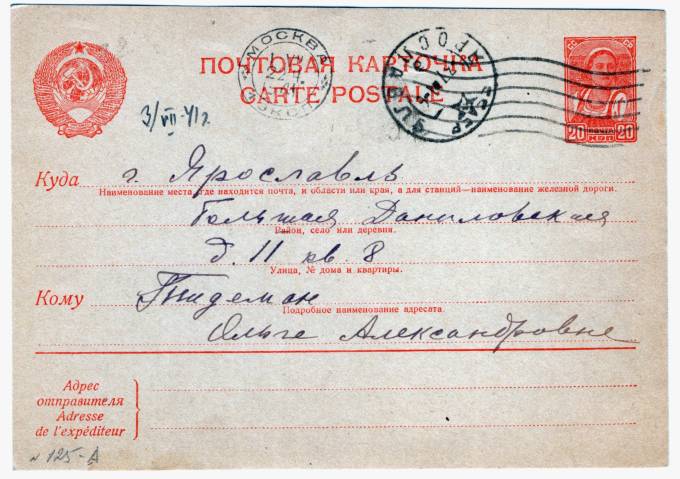 МОСКВА
ПОЧТОВАЯ КАРТОЧКА
CARTE POSTALE
20 ПОЧТА 20
КОП
3/VII-41г.
Куда г. Ярославль
Наименование места, где находится почта, и области или края, а для станций—наименование железной дороги.
Большая Даниловская
Район, село или деревня.
д. 11 кв. 8
Улица, № дома и квартиры.
Кому Тидеман
Подробное наименование адресата.
Ольге Александровне
Адрес
отправителя
Adresse
de l'expéditeur
№ 125-А